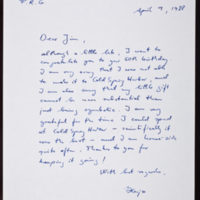 April 9, 1988
Dear Jim,
although a little late, I want to
congratulate you to your 60th birthday.
I am very sorry that I was not able
to make it to Cold Spring Harbor, and
I am also sorry that my little gift
cannot be more substantial than
just being symbolic. I am very
grateful for the time I could spend
at Cold Spring Harbor – scientifically it
was the best – and I am home sick
quite often. Thanks to you for
keeping it going!
With best regards,